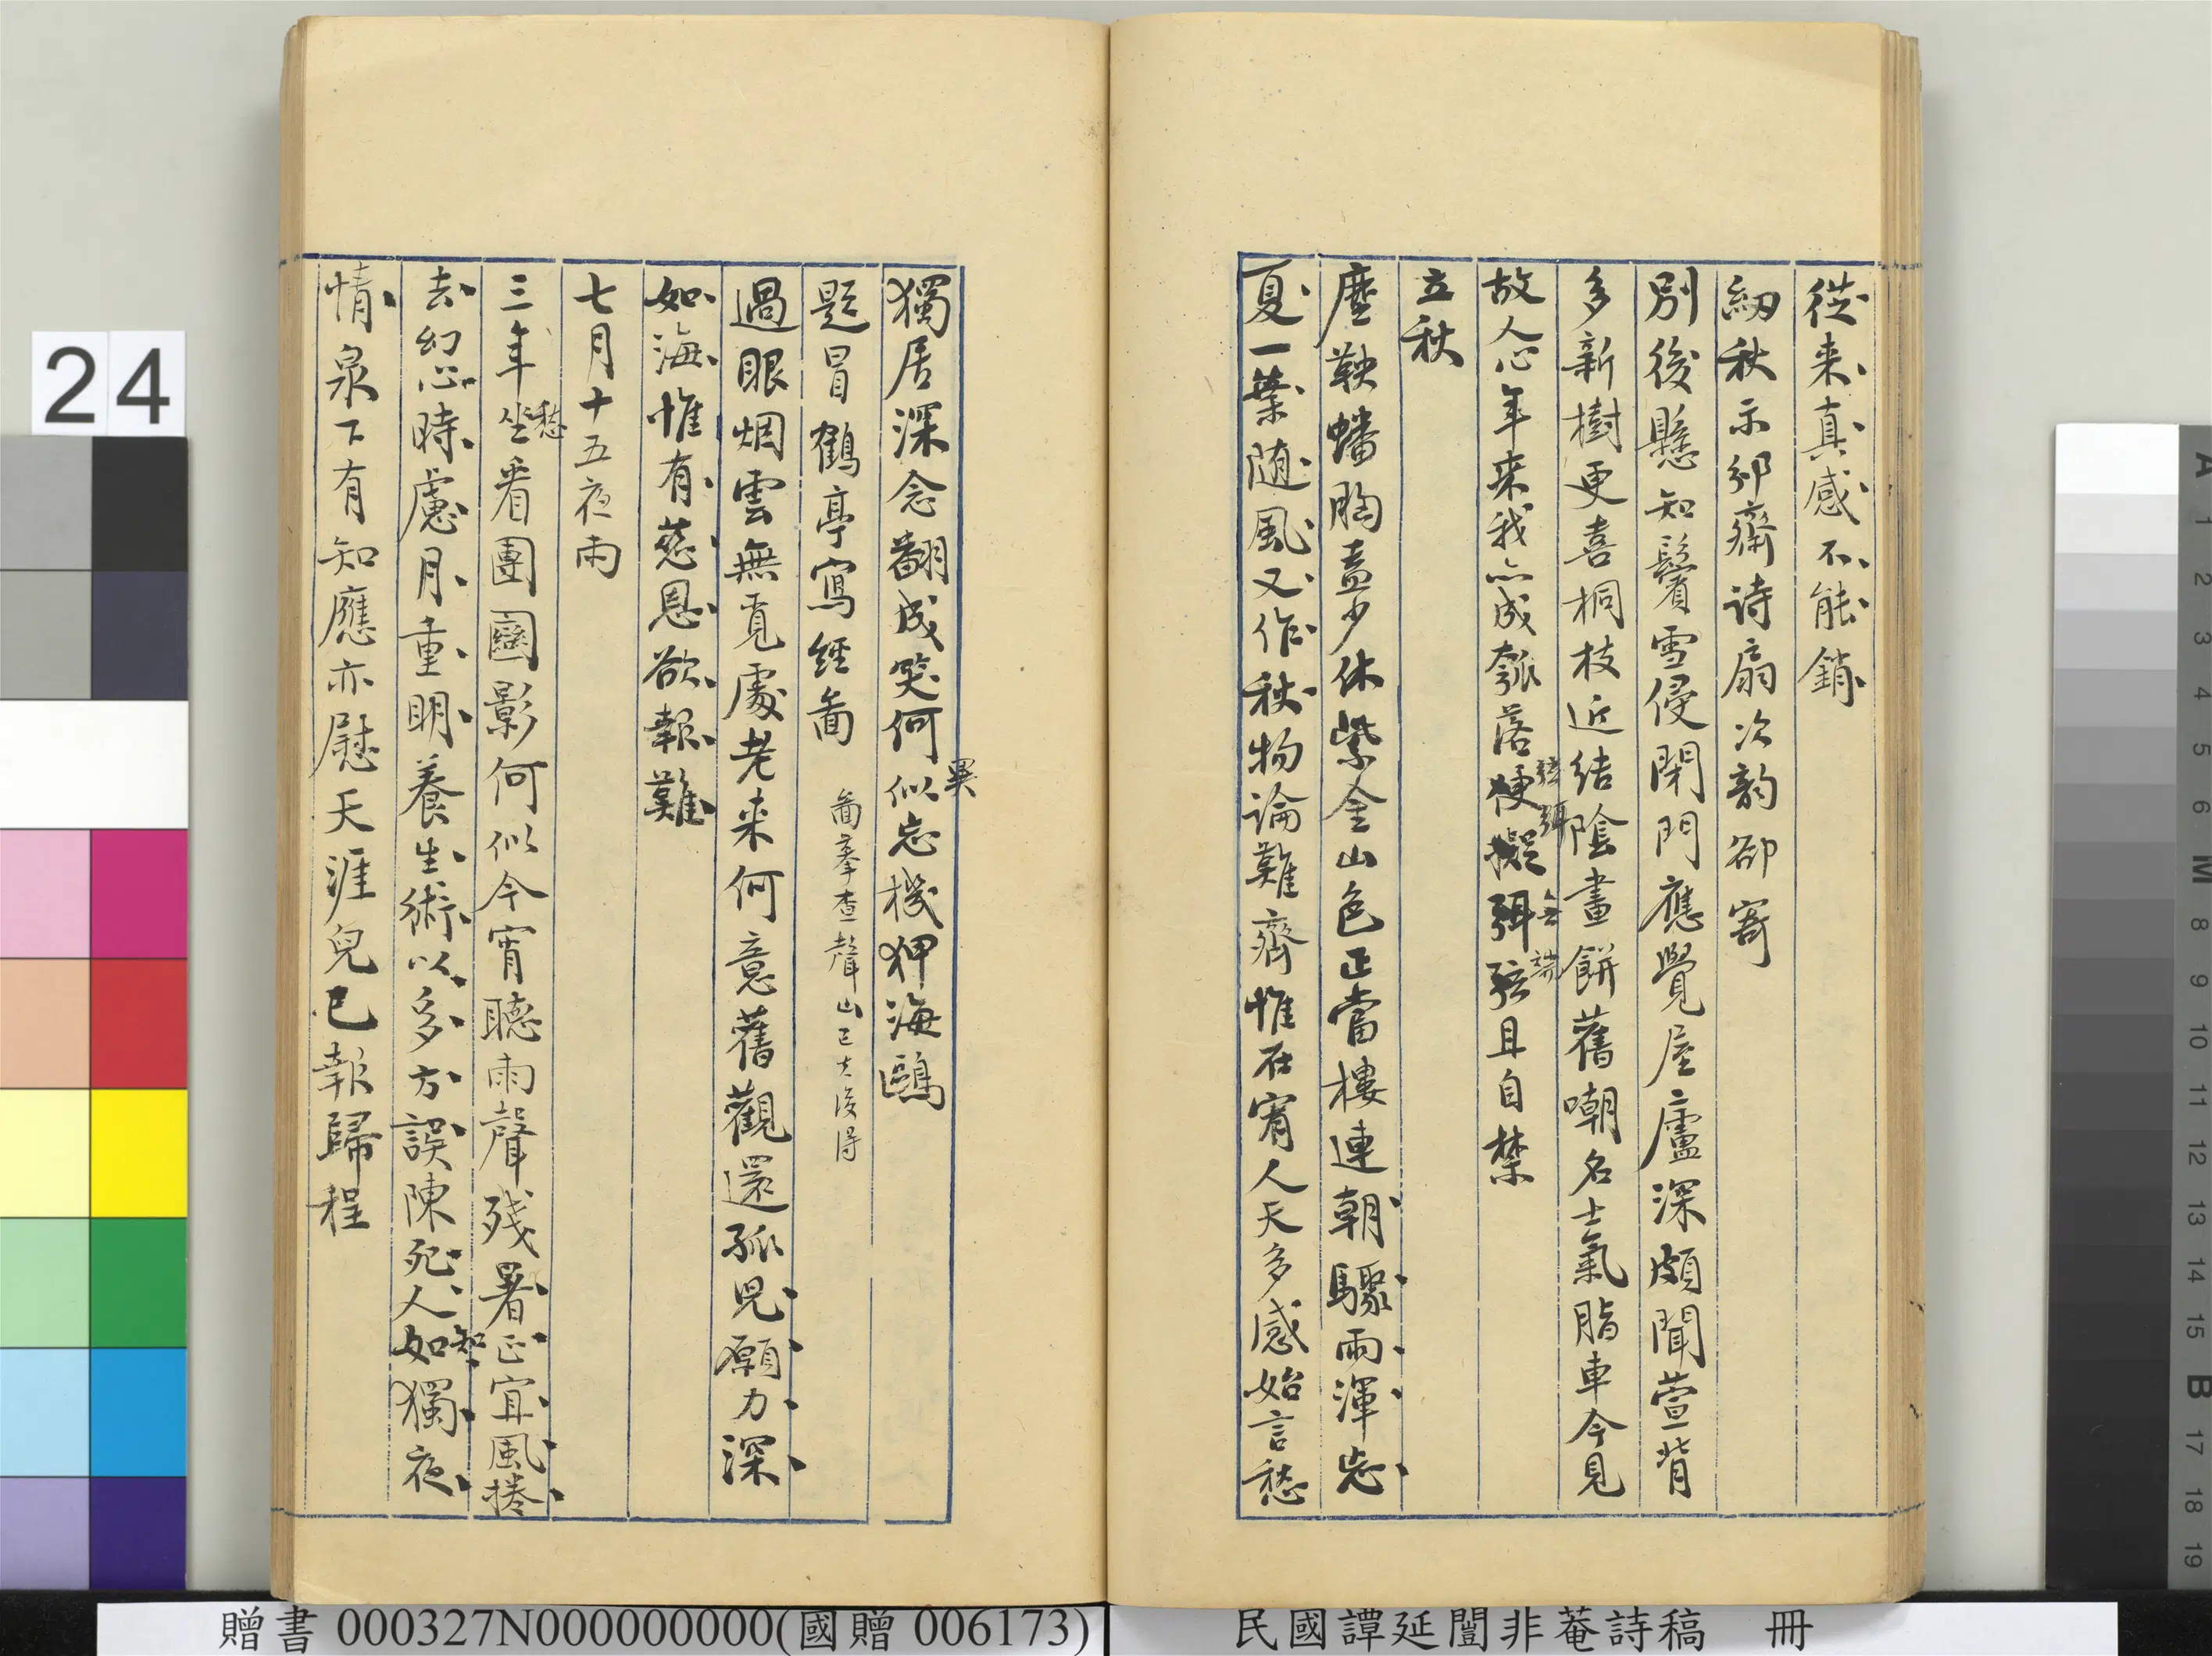 從来真感不能銷
紉秋示邠齋詩扇次韵卻寄
別後懸知鬢雪侵閉門應覺屋廬深頗聞萱背
多新樹更喜桐枝近結陰畫餅舊嘲名士氣脂車今見
故人心年来我亦成瓠落便擬弭弦且自禁
弦弭
無端
立秋
塵鞅蟠胸盍少休紫金山色正當樓連朝驟雨渾忘
夏一葉随風又作秋物論難齊惟在宥人天多感始言愁
獨居深念翻成笑何似忘機狎海鷗
異
題冒鶴亭寫經啚
啚摹查聲山已去後得
過眼烟雲無覓處老来何意舊觀還孤児願力深
如海惟有慈恩欲報難
七月十五夜雨
三年坐看團圞影何似今宵聽雨聲残暑正宜風捲
愁
去幻心時慮月重明養生術以多方誤陳死人如獨夜
知
情泉下有知應亦慰天涯兒已報歸程
24
贈書 000327N000000000(國贈 006173)
民國譚延闓非菴詩稿 冊
A 1 2 3 4 5 6 M 8 9 10 11 12 13 14 15 B 17 18 19